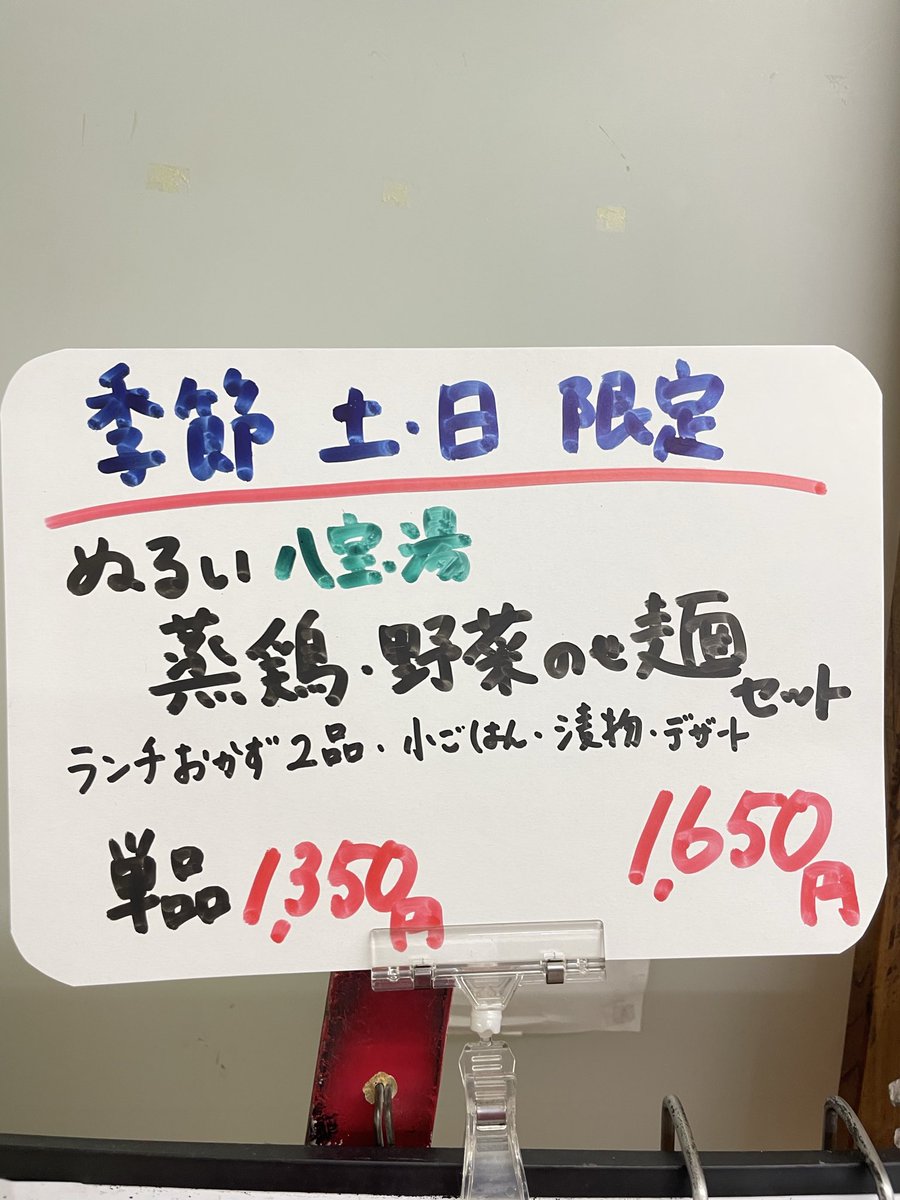 季節 土・日 限定
ぬるい 八宝・湯
蒸鶏・野菜のせ麺セット
ランチおかず2品・小ごはん・漬物・デザート
1,650円
単品 1,350円